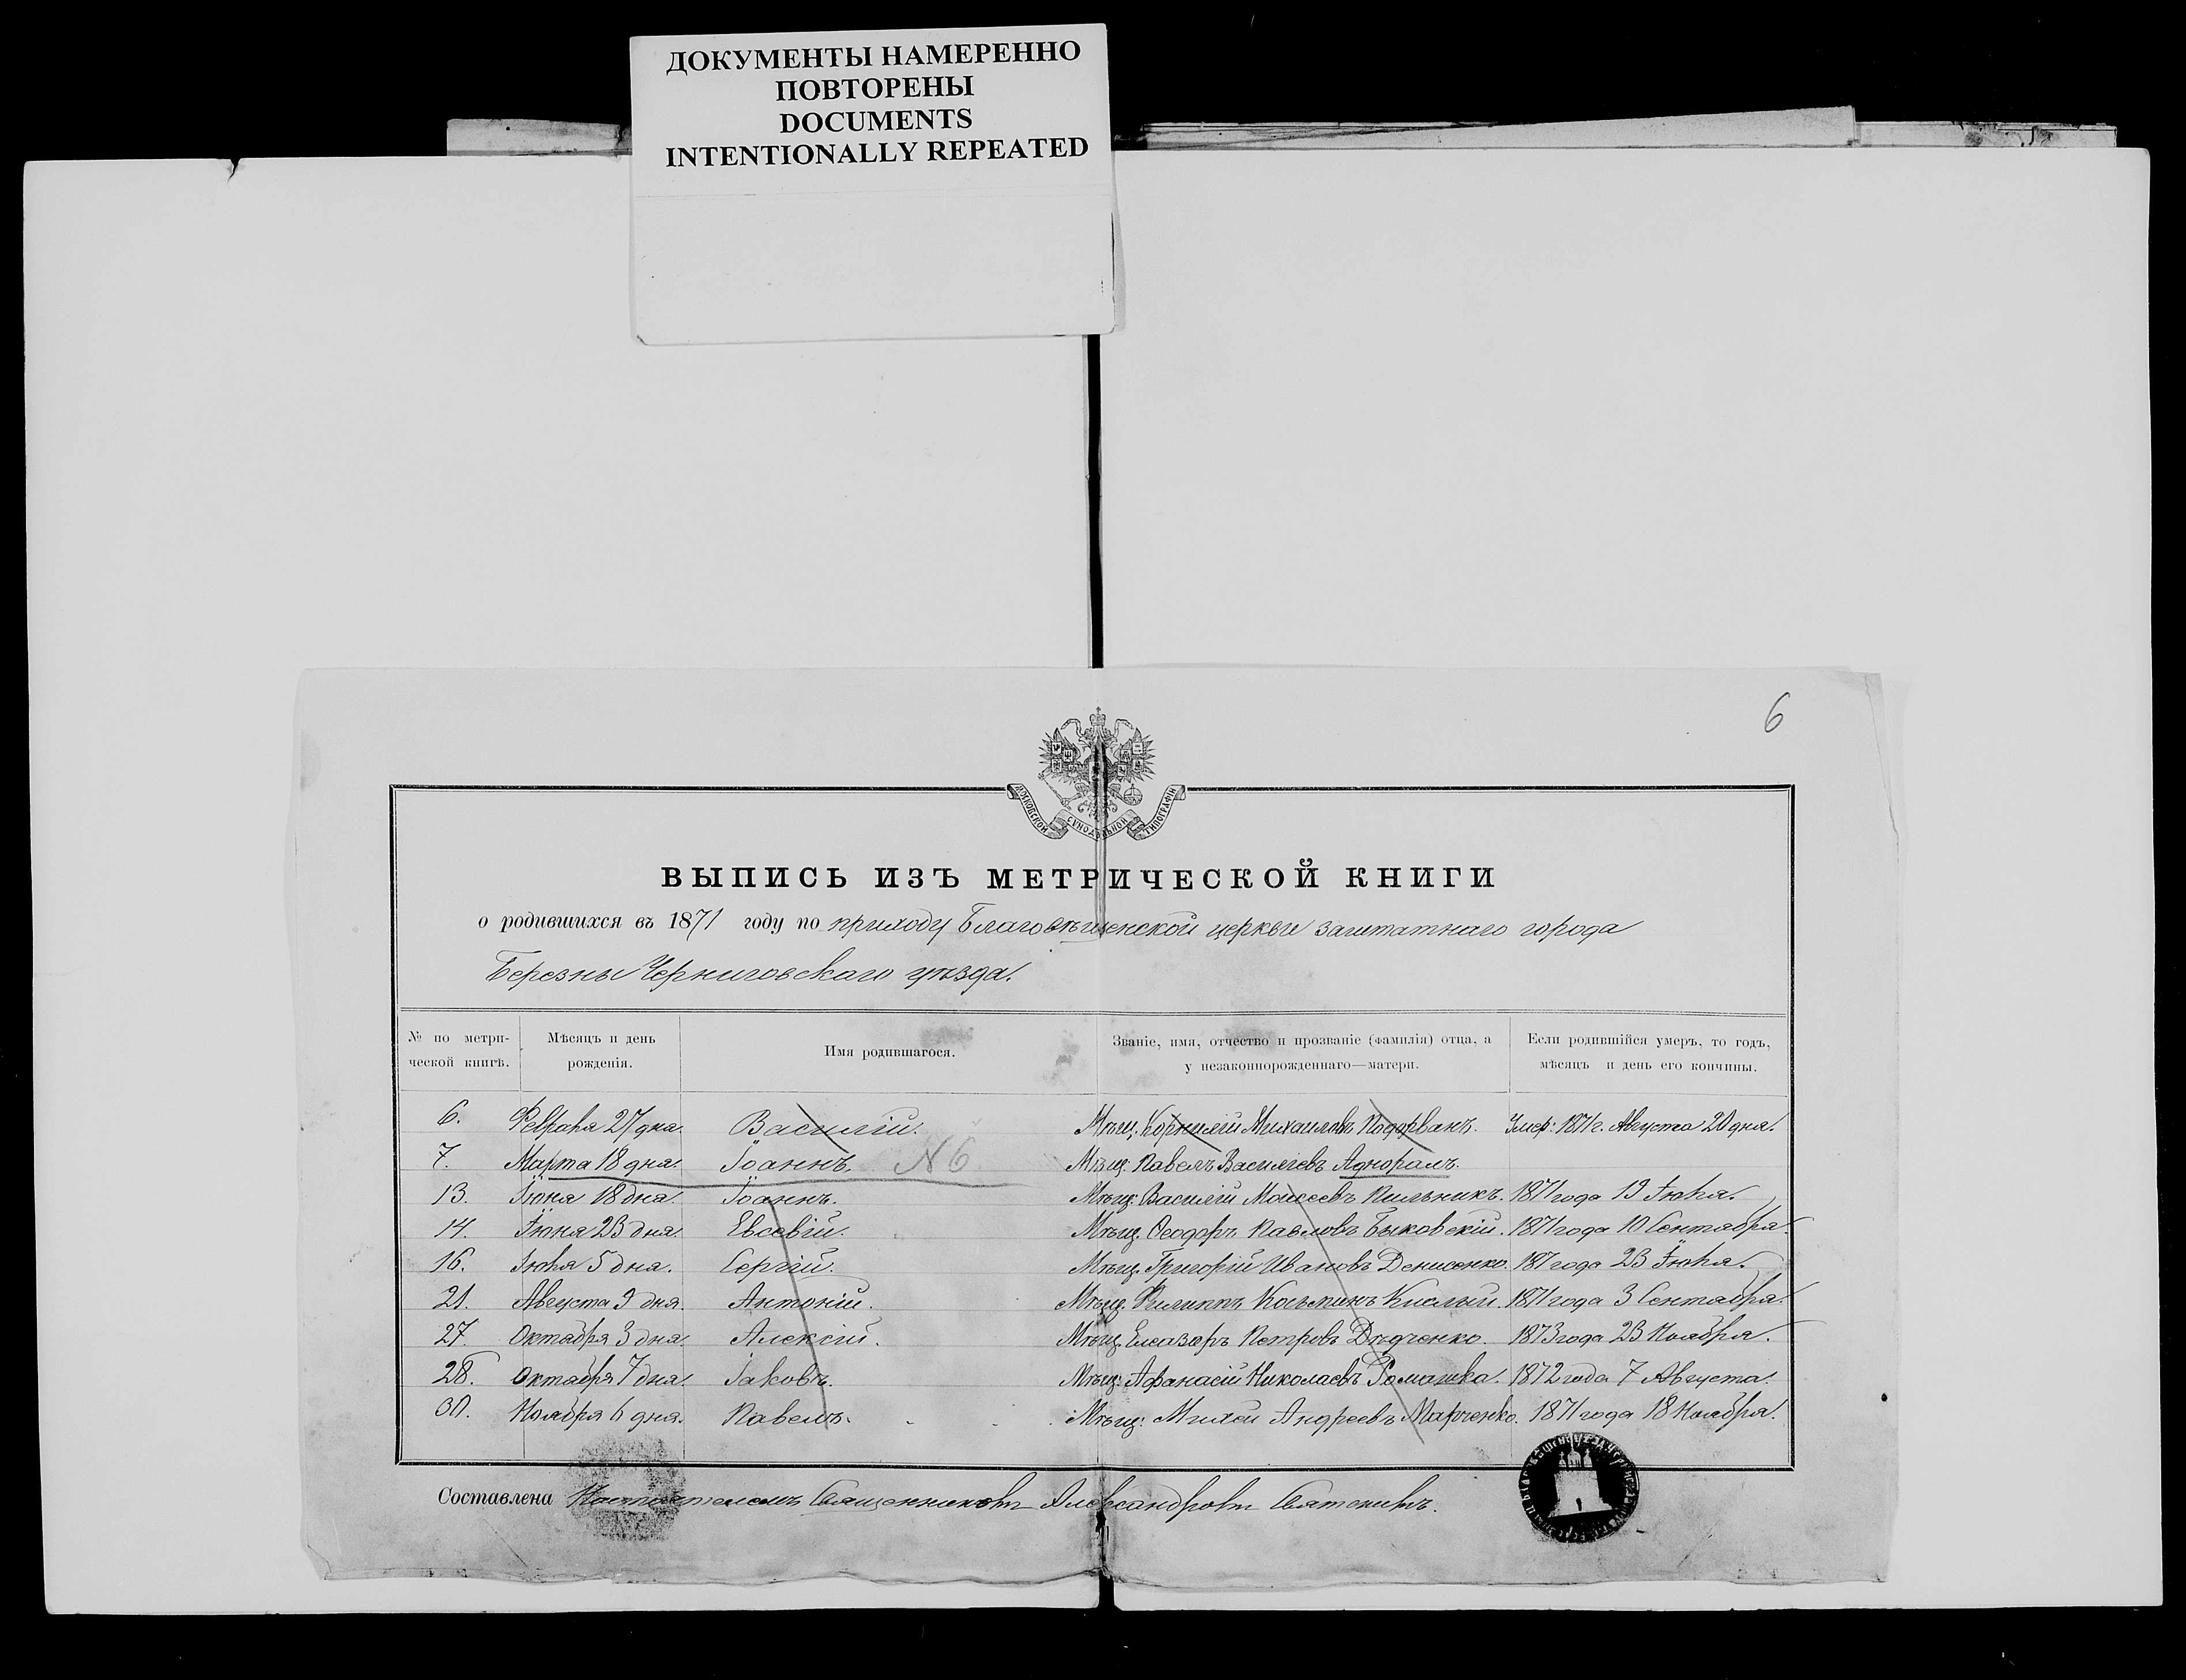 ДОКУМЕНТЫ НАМЕРЕННО
ПОВТОРЕНЫ
DOCUMENTS
INTENTIONALLY REPEATED
6
МОСКОВСКОЙ СУНОДАЛЬНОЙ ТИПОГРАФІИ
ВЫПИСЬ ИЗЪ МЕТРИЧЕСКОЙ КНИГИ
о родившихся въ 1871 году по приходу Благовѣщенской церкви заштатнаго города
Березны Черниговскаго уѣзда.
№ по метри- ческой книгѣ. Мѣсяцъ и день рожденія. Имя родившагося. Званіе, имя, отчество и прозваніе (фамилія) отца, а у незаконнорожденнаго—матери. Если родившійся умеръ, то годъ, мѣсяцъ и день его кончины.
6. Февраля 27 дня. Василій. Мѣщ. Корнилій Михаиловъ Подорванъ. Умер: 1871 г. Августа 20 дня.
7. Марта 18 дня. Іоаннъ. N 6 Мѣщ. Павелъ Василіевъ Адморалъ.
13. Іюня 18 дня. Іоаннъ. Мѣщ. Василій Моисеевъ Пильникъ. 1871 года 13 Іюля.
14. Іюня 23 дня. Евсевій. Мѣщ. Ѳеодоръ Павловъ Быковскій. 1871 года 10 Сентября.
16. Іюля 5 дня. Сергій. Мѣщ. Григорій Ивановъ Денисенко. 1871 года 23 Іюля.
21. Августа 3 дня. Антоній. Мѣщ. Филиппъ Косьминъ Кислый. 1871 года 3 Сентября.
27. Октября 3 дня. Алексій. Мѣщ. Елеазаръ Петровъ Дѣдченко. 1873 года 23 Ноября.
28. Октября 7 дня. Іаковъ. Мѣщ. Афанасій Николаевъ Ромашка. 1872 года 7 Августа.
30. Ноября 6 дня. Павелъ. Мѣщ. Михей Андреевъ Марченко. 1871 года 18 Ноября.
Составлена Настоятелемъ Священникомъ Александромъ